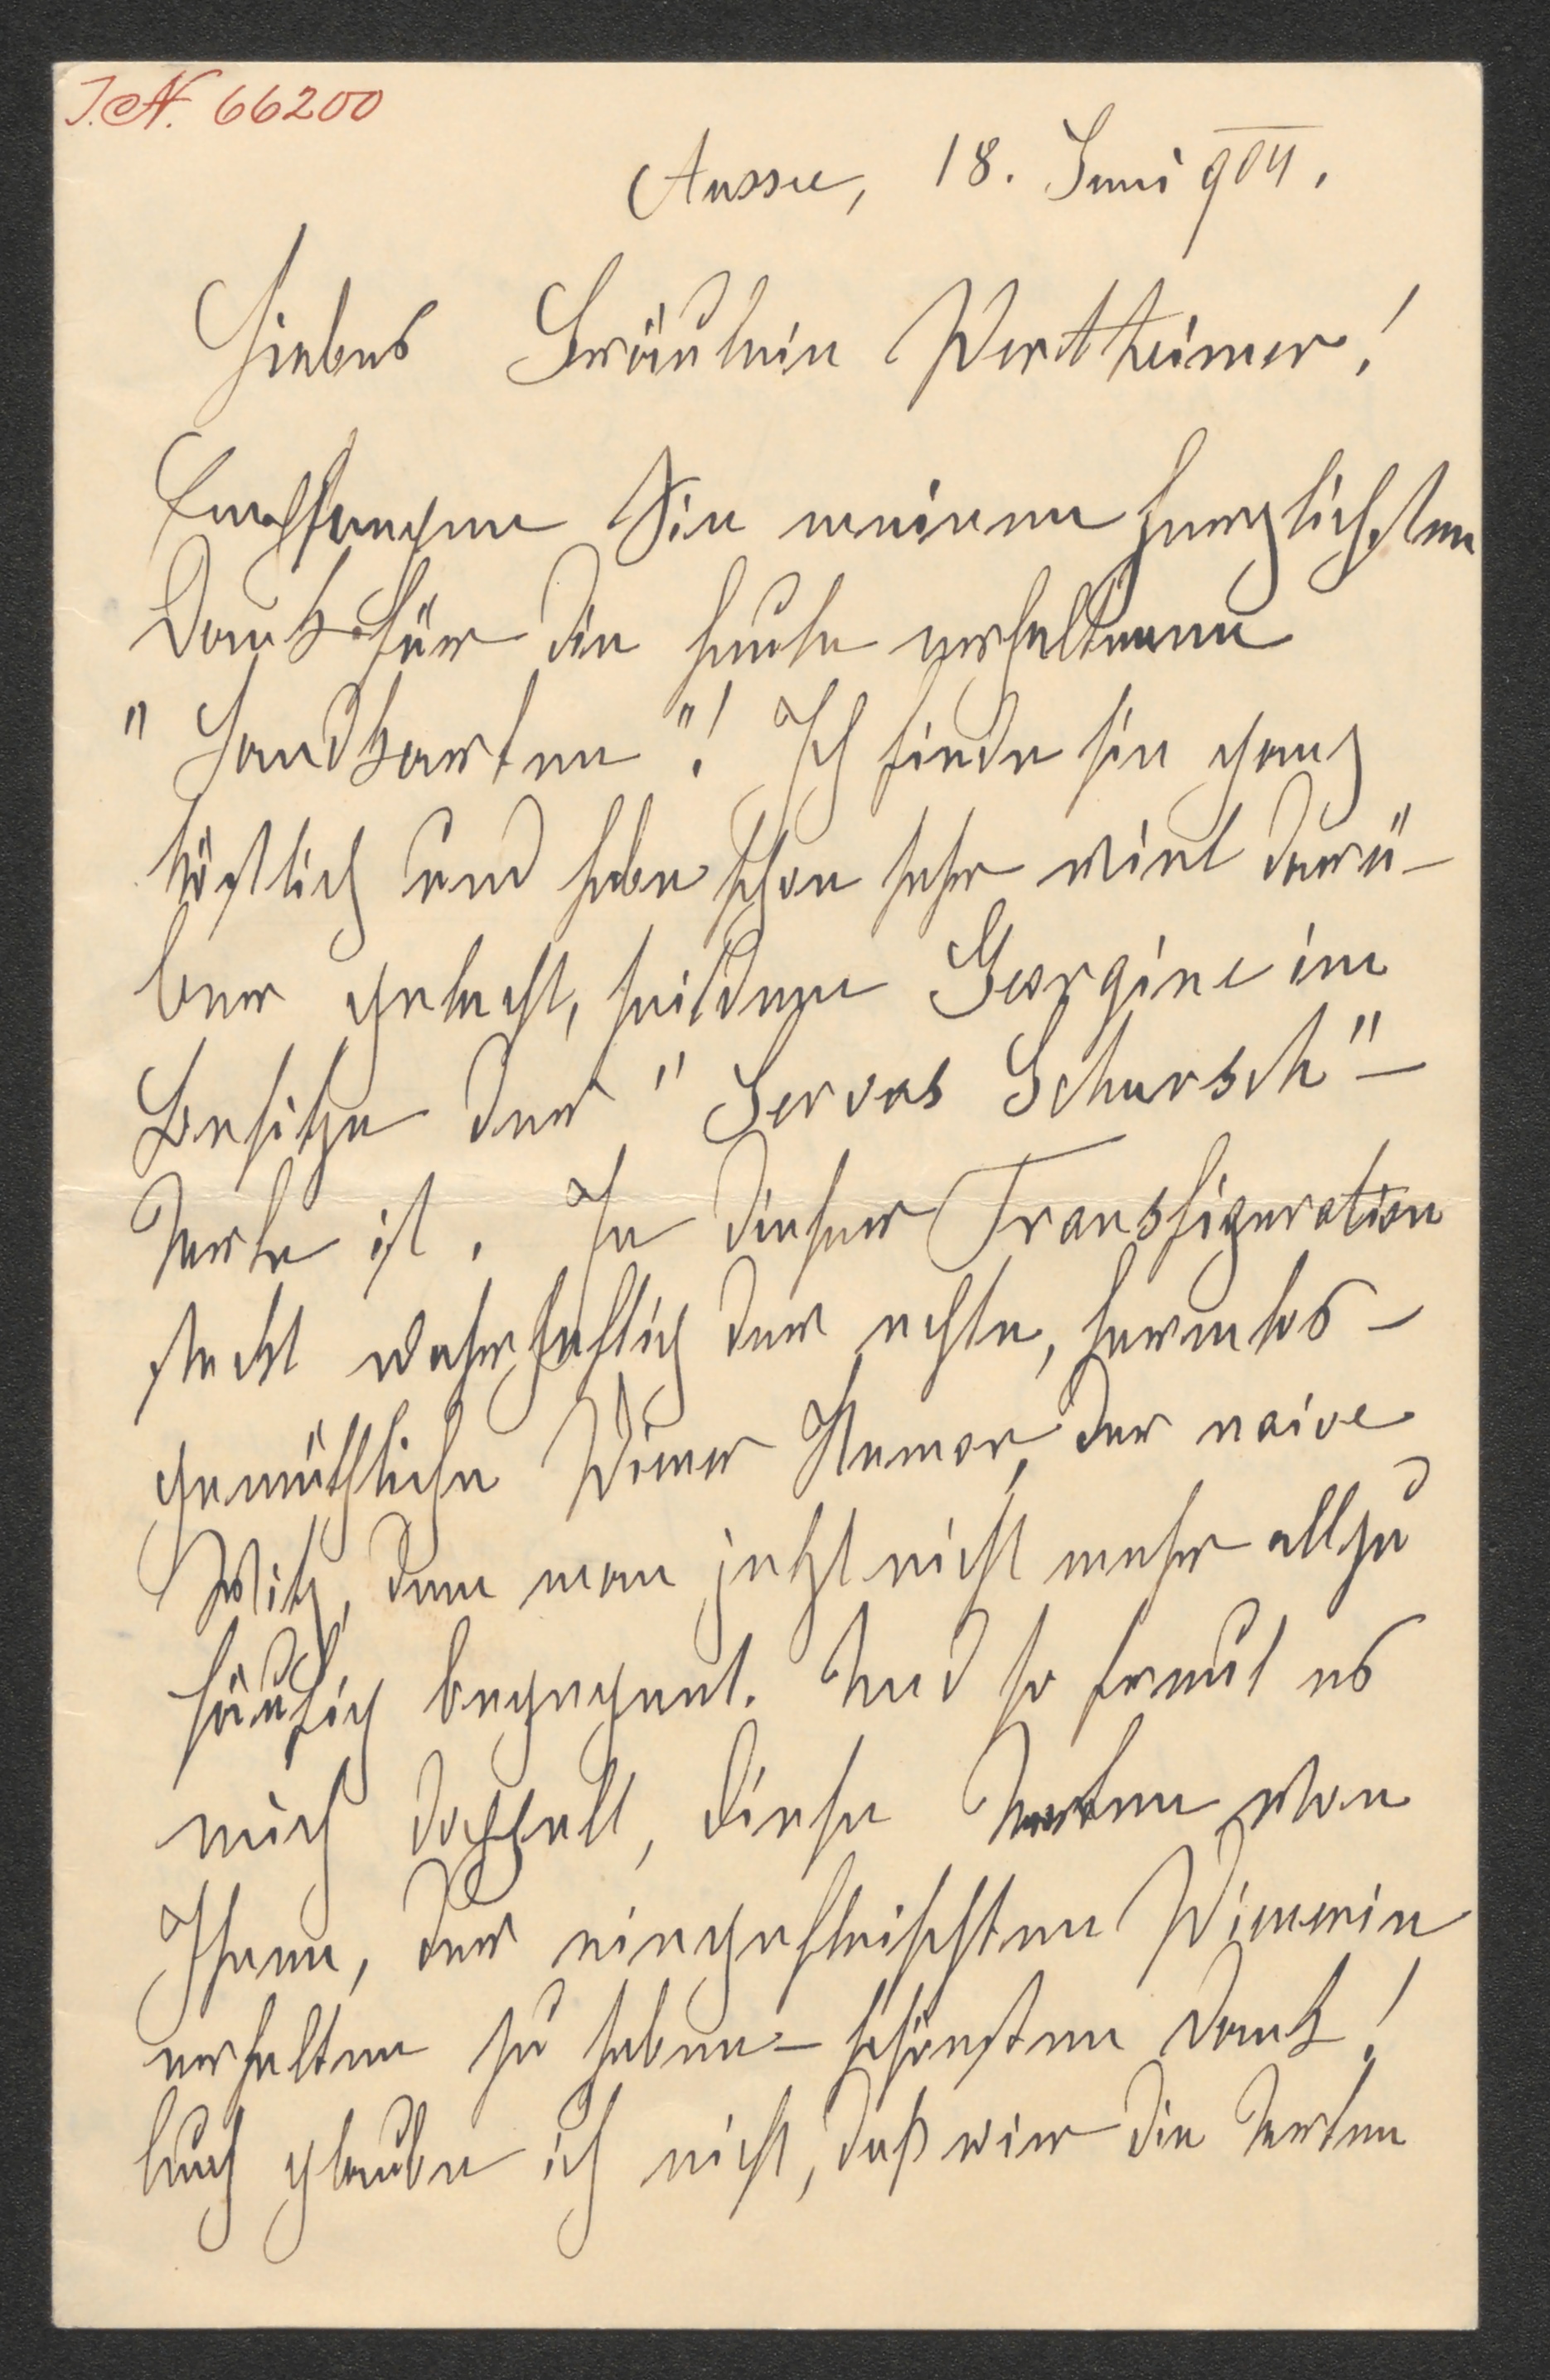 I.N. 66200
Aussee, 18. Juni 904.
Liebes Fräulein Wertheimer!
Empfangen Sie meinen herzlichsten
Dank für die heute erhaltenen
"Landkarten"! Ich finde sie ganz
köstlich und habe schon sehr viel darü-
ber gelacht, seitdem Georgine im
Besitze der "Servas Schursch"-
Karte ist. In dieser Transfiguration
steckt wahrhaftig der echte, harmlos-
gemüthliche Wiener Humor, der naive
Witz, dem man jetzt nicht mehr allzu
häufig begegnet. Und so freut es
mich doppelt, diese Karten von
Ihnen, der eingefleischten Wienerin
erhalten zu haben – schönsten Dank!
Auch glaube ich nicht, daß wir die Karten